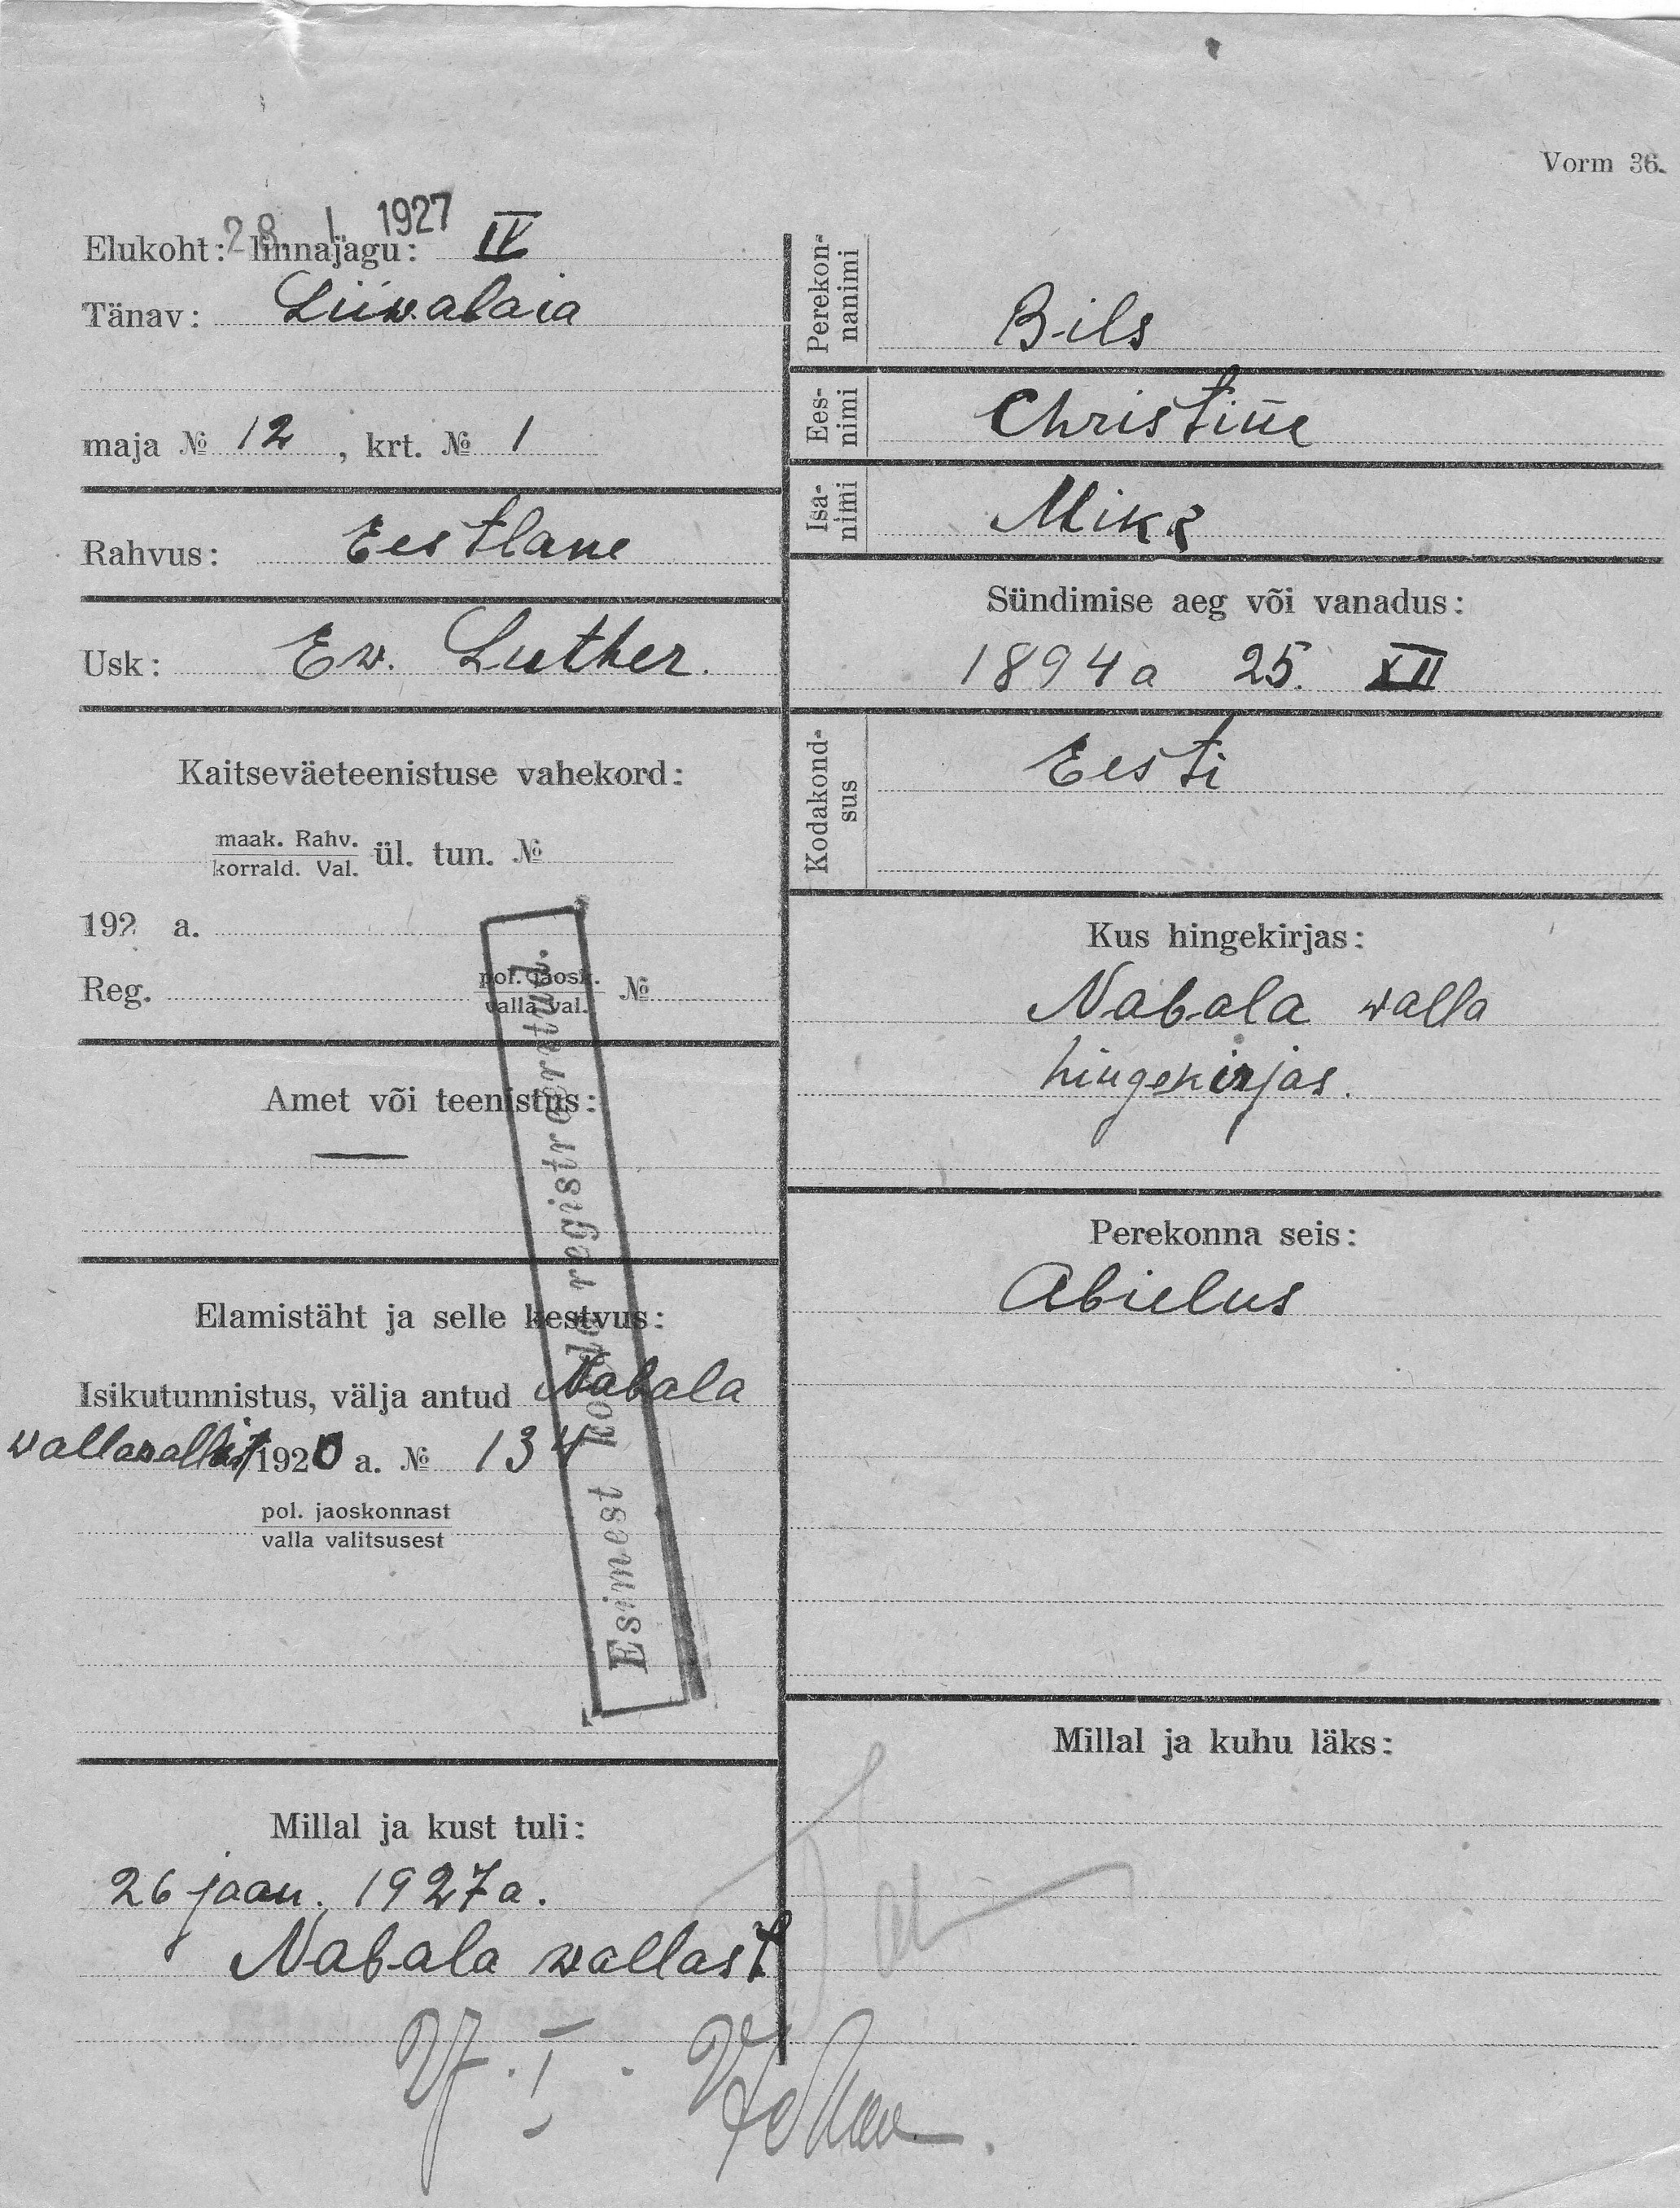 Vorm 36.
28. I 1927
Elukoht: linnajagu: IV
Tänav: Liiwalaia
maja № 12, krt. № 1
Rahvus: Eestlane
Usk: Ew. Luther.
Kaitseväeteenistuse vahekord:
maak. Rahv.
korrald. Val. ül. tun. №
192 a.
Reg. pol. jaosk. №
valla val.
Amet või teenistus:
—
Elamistäht ja selle kestvus:
Isikutunnistus, välja antud Nabala
wallawalits 1920 a. № 134
pol. jaoskonnast
valla valitsusest
Esimest korda registreeritud.
Millal ja kust tuli:
26 jaan. 1927 a.
Nabala wallast
Perekon-
nanimi
Bils
Ees-
nimi
Christine
Isa-
nimi
Mikk
Sündimise aeg või vanadus:
1894 a 25. XII
Kodakond-
sus
Eesti
Kus hingekirjas:
Nabala walla
hingekirjas.
Perekonna seis:
Abielus
Millal ja kuhu läks: